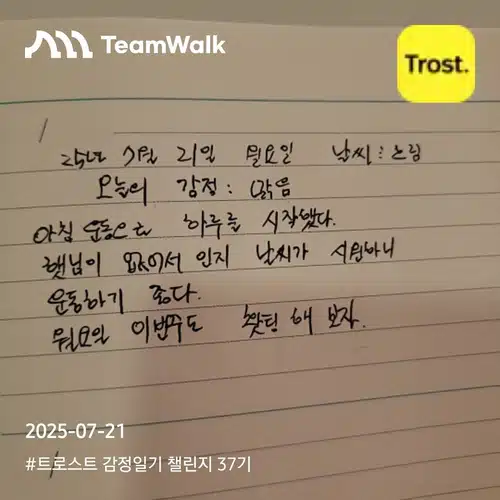 TeamWalk
Trost.
25년 7월 21일 월요일 날씨 : 흐림
오늘의 감정 : 맑음
아침 운동으로 하루를 시작했다.
햇님이 없어서 인지 날씨가 시원하니
운동하기 좋다.
월요일 이번주도 홧팅 해 보자.
2025-07-21
#트로스트 감정일기 챌린지 37기